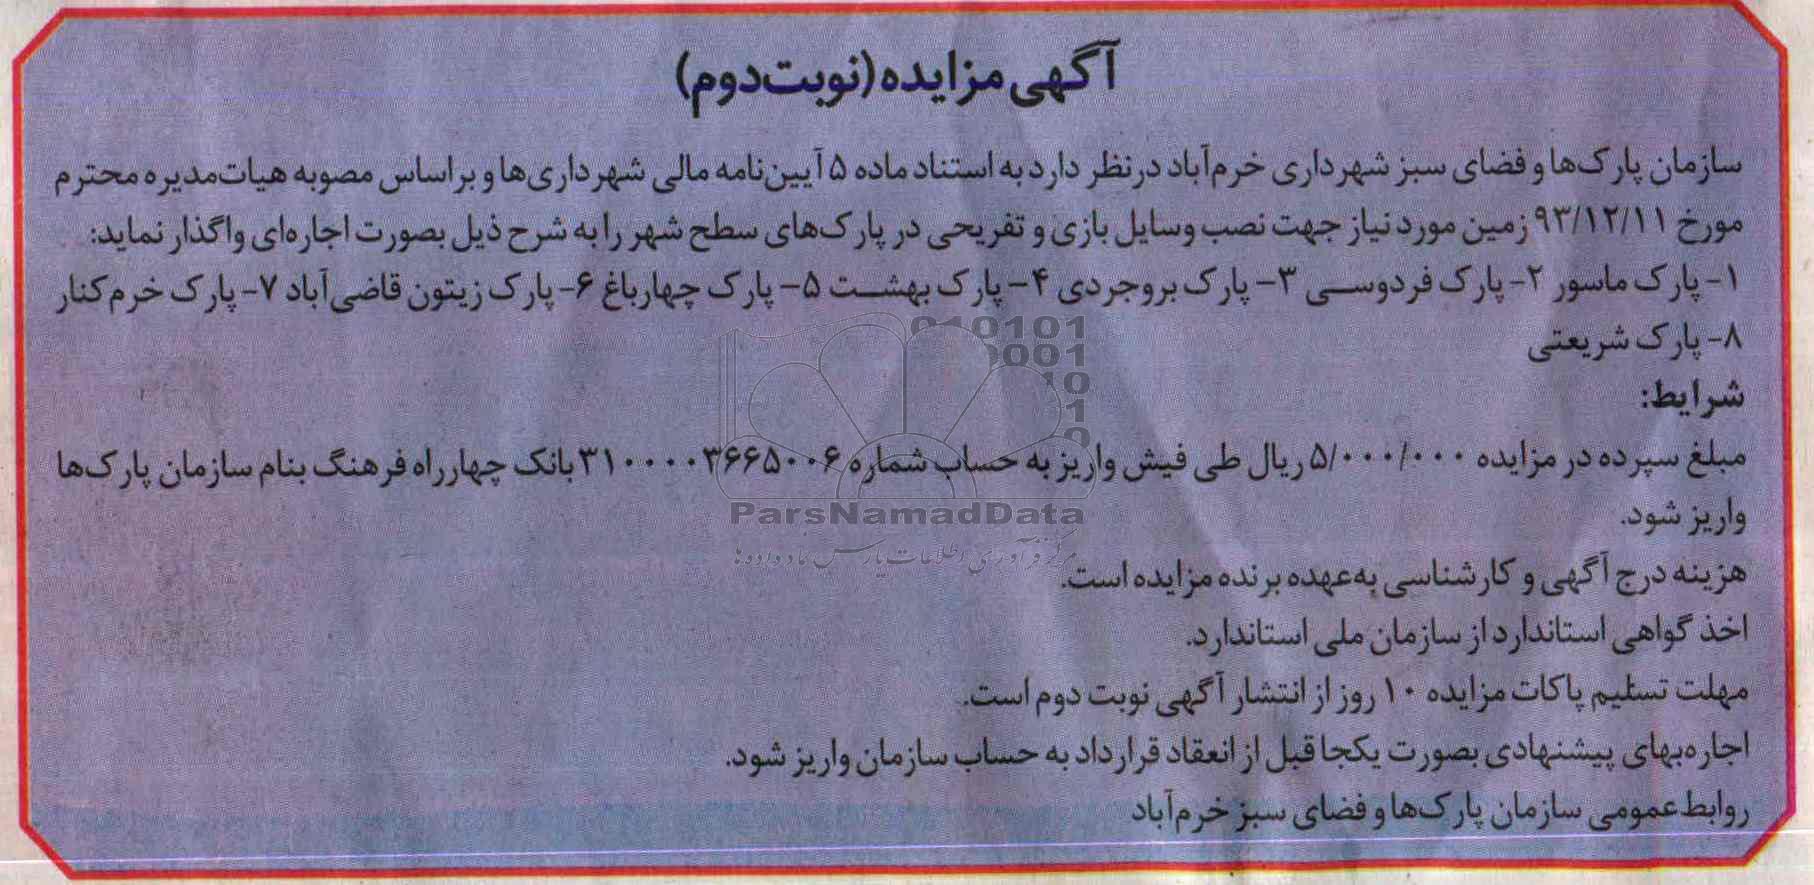 آگهی مزایده (نوبت دوم)
سازمان پارک‌ها و فضای سبز شهرداری خرم‌آباد در نظر دارد به استناد ماده ۵ آیین‌نامه مالی شهرداری‌ها و براساس مصوبه هیات‌مدیره محترم
مورخ ۹۳/۱۲/۱۱ زمین مورد نیاز جهت نصب وسایل بازی و تفریحی در پارک‌های سطح شهر را به شرح ذیل بصورت اجاره‌ای واگذار نماید:
۱- پارک ماسور ۲- پارک فردوسی ۳- پارک بروجردی ۴- پارک بهشت ۵- پارک چهارباغ ۶- پارک زیتون قاضی‌آباد ۷- پارک خرم‌کنار
۸- پارک شریعتی
شرایط:
مبلغ سپرده در مزایده ۵/۰۰۰/۰۰۰ ریال طی فیش واریز به حساب شماره ۳۱۰۰۰۰۳۶۶۵۰۰۶ بانک چهارراه فرهنگ بنام سازمان پارک‌ها
واریز شود.
هزینه درج آگهی و کارشناسی به‌عهده برنده مزایده است.
اخذ گواهی استاندارد از سازمان ملی استاندارد.
مهلت تسلیم پاکات مزایده ۱۰ روز از انتشار آگهی نوبت دوم است.
اجاره‌بهای پیشنهادی بصورت یکجا قبل از انعقاد قرارداد به حساب سازمان واریز شود.
روابط عمومی سازمان پارک‌ها و فضای سبز خرم‌آباد
010101
0001
10
1
0
ParsNamadData
مرکز فرآوری اطلاعات پارس نماد داده‌ها